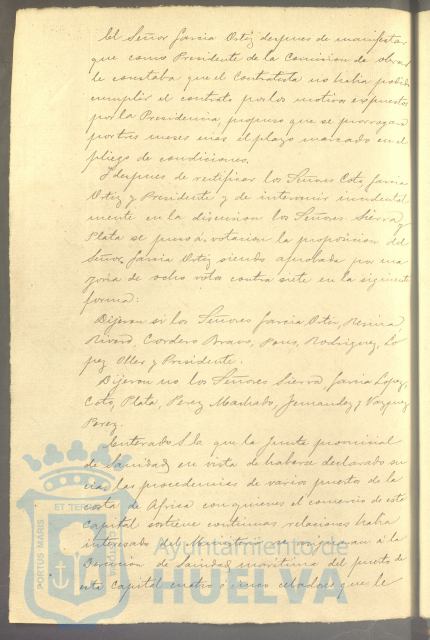 El Señor Garcia Ortiz despues de manifestar
que como Presidente de la Comision de obras
le constaba que el Contratista no habia podido
cumplir el contrato por los motivos expuestos
por la Presidencia propuso que se prorrogara
por tres meses mas el plazo marcado en el
pliego de condiciones.
Y despues de rectificar los Señores Coto, Garcia
Ortiz y Presidente y de intervenir incidental
mente en la discusion los Señores Sierra y
Plata se puso á votacion la proposicion del
Señor Garcia Ortiz siendo aprobada por ma
yoria de ocho votos contra siete en la siguiente
forma:
Dijeron si los Señores Garcia Ortiz,
Cordero Bravo, Pons, Rodriguez, Lo
pez Oller y Presidente.
Dijeron no los Señores Sierra, Garcia Lopez,
Coto, Plata, Perez Machado, Fernandez y Vazquez
Perez.
Enterado S. la que la Junta provincial
de Sanidad en vista de haberse declarado su
cias las procedencias de varios puertos de la
costa de Africa con quienes el comercio de esta
Capital sostiene continuas relaciones habia
interesado del Ministerio se asignaran á la
Direccion de Sanidad maritima del puerto de
esta Capital cuatro ó cinco celadores que le
ET TERR
PORTUS MARIS
Ayuntamiento de
HUELVA